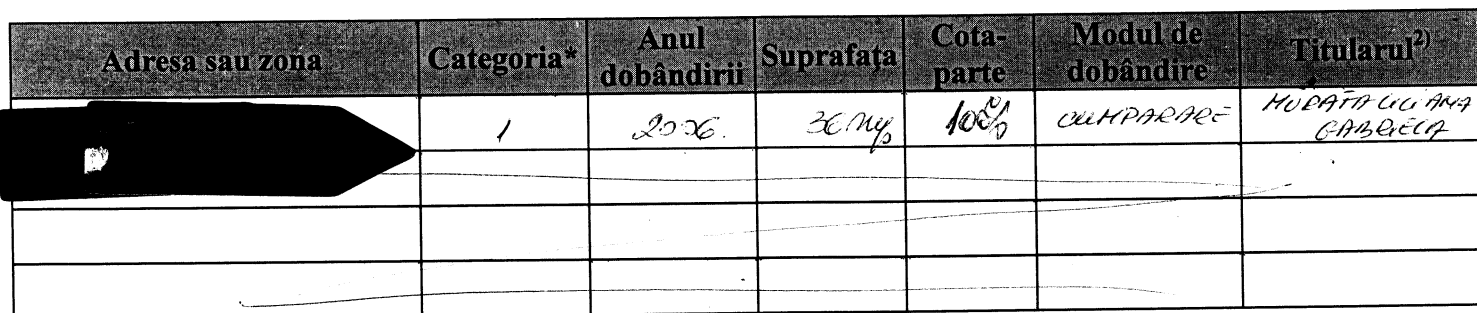 Adresa sau zona Categoria* Anul dobândirii Suprafaţa Cota-parte Modul de dobândire Titularul2)
1 2006. 36 mp 100% CUMPARARE MURATA LILIANA
GABRIELA